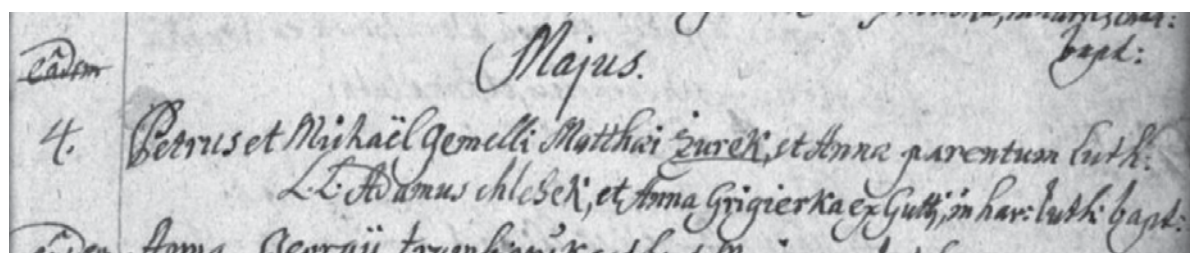 bapt:
eadem Majus.
4. Petrus et Michaël Gemelli Matthæi Zurek, et Anna parentum luth:
L.L. Adamus chlebek, et Anna Grigierka ex Gutt, in har: luth: bapt:
Anna Georgii